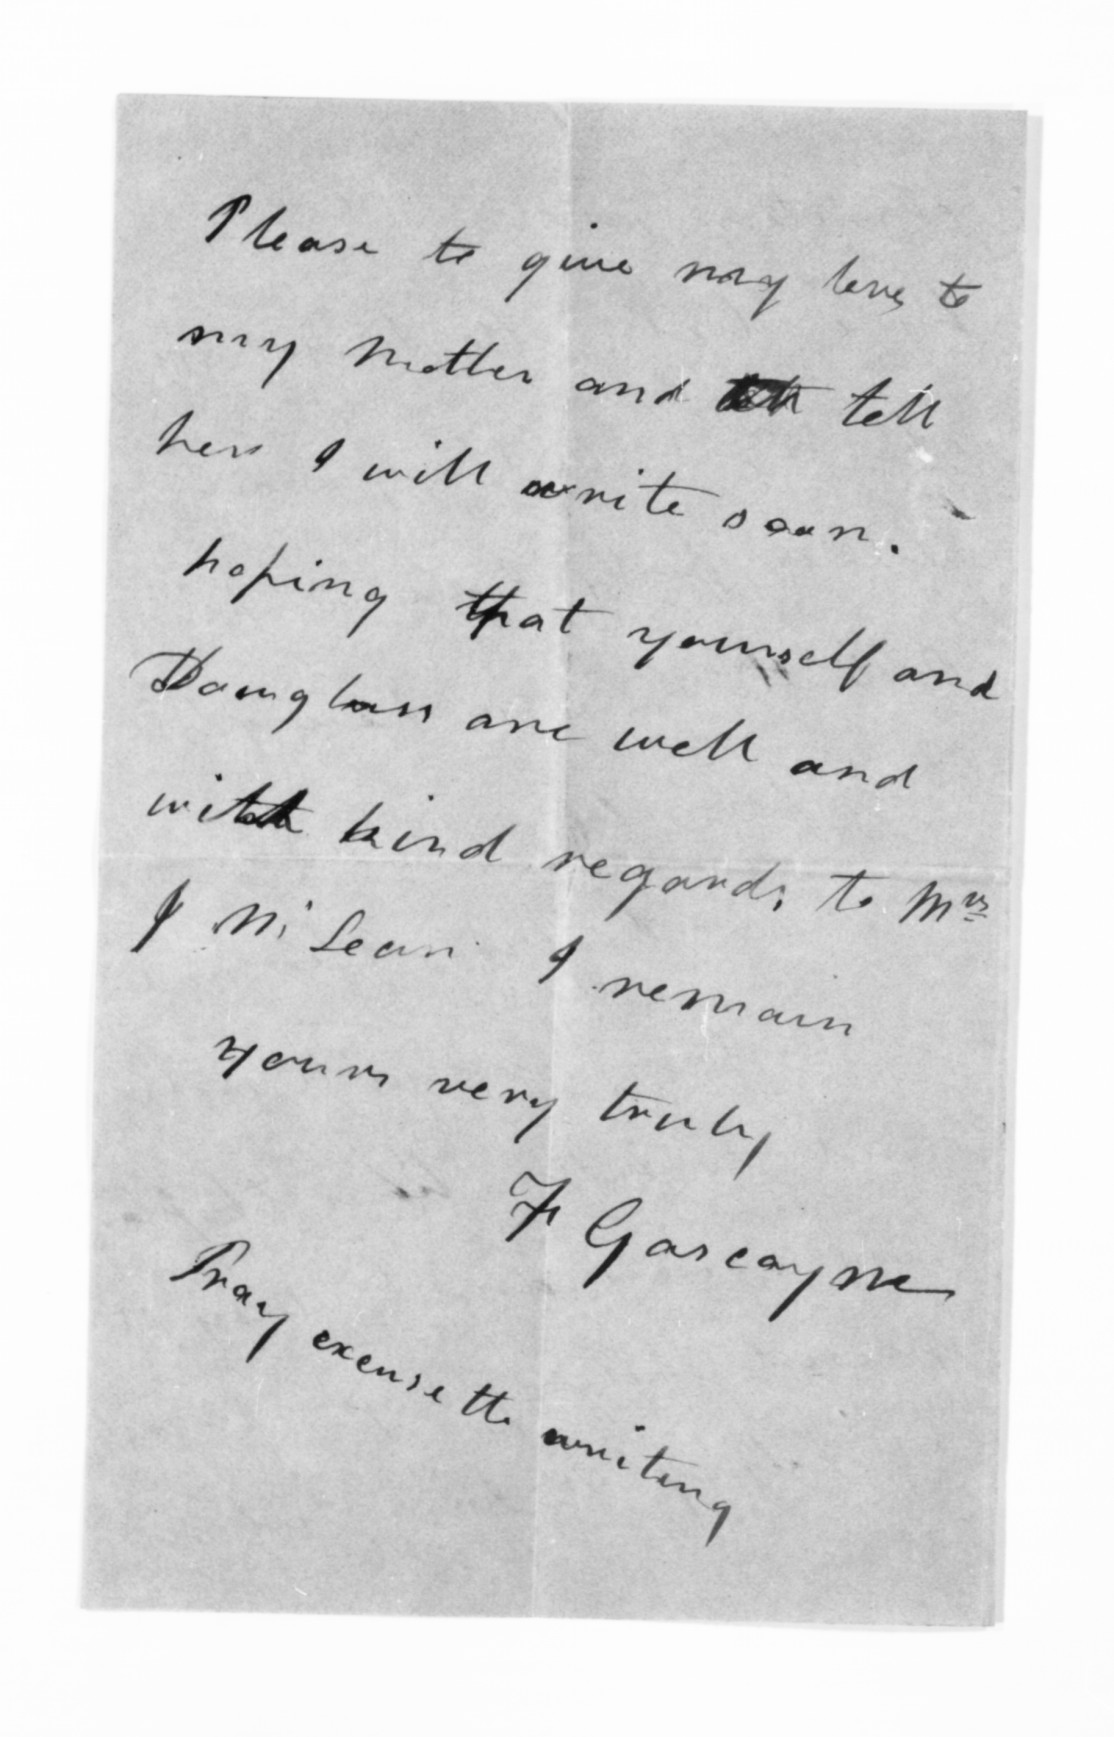 Please to give my love to
my Mother and tell
her I will write soon.
hoping that yourself and
Douglass are well and
with kind regards to Mrs
J McLean I remain
yours very truly
F Gascoyne
Pray excuse the writing